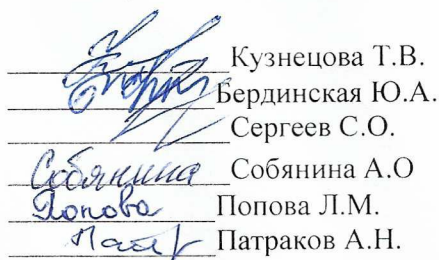 Кузнецова Т.В.
Бердинская Ю.А.
Сергеев С.О.
Собянина Собянина А.О
Попова Попова Л.М.
Патраков А.Н.